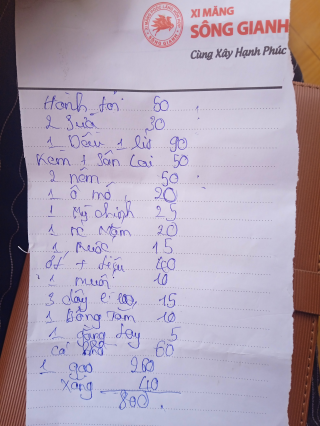 XI MĂNG
SÔNG GIANH
Cùng Xây Hạnh Phúc
Hành tỏi 50
2 Sữa 30
1 Dầu 1 lis 90
Kem 1 Sân Lai 50
2 nêm 50
1 ô mô 20
1 Mỳ chinh 25
1 mắm 20
1 ruốc 15
ớt + tiêu 40
1 muối 10
3 dây 15
1 Bông Tăm 10
1 găng tay 5
cá 60
1 gạo 260
Xăng 40
800